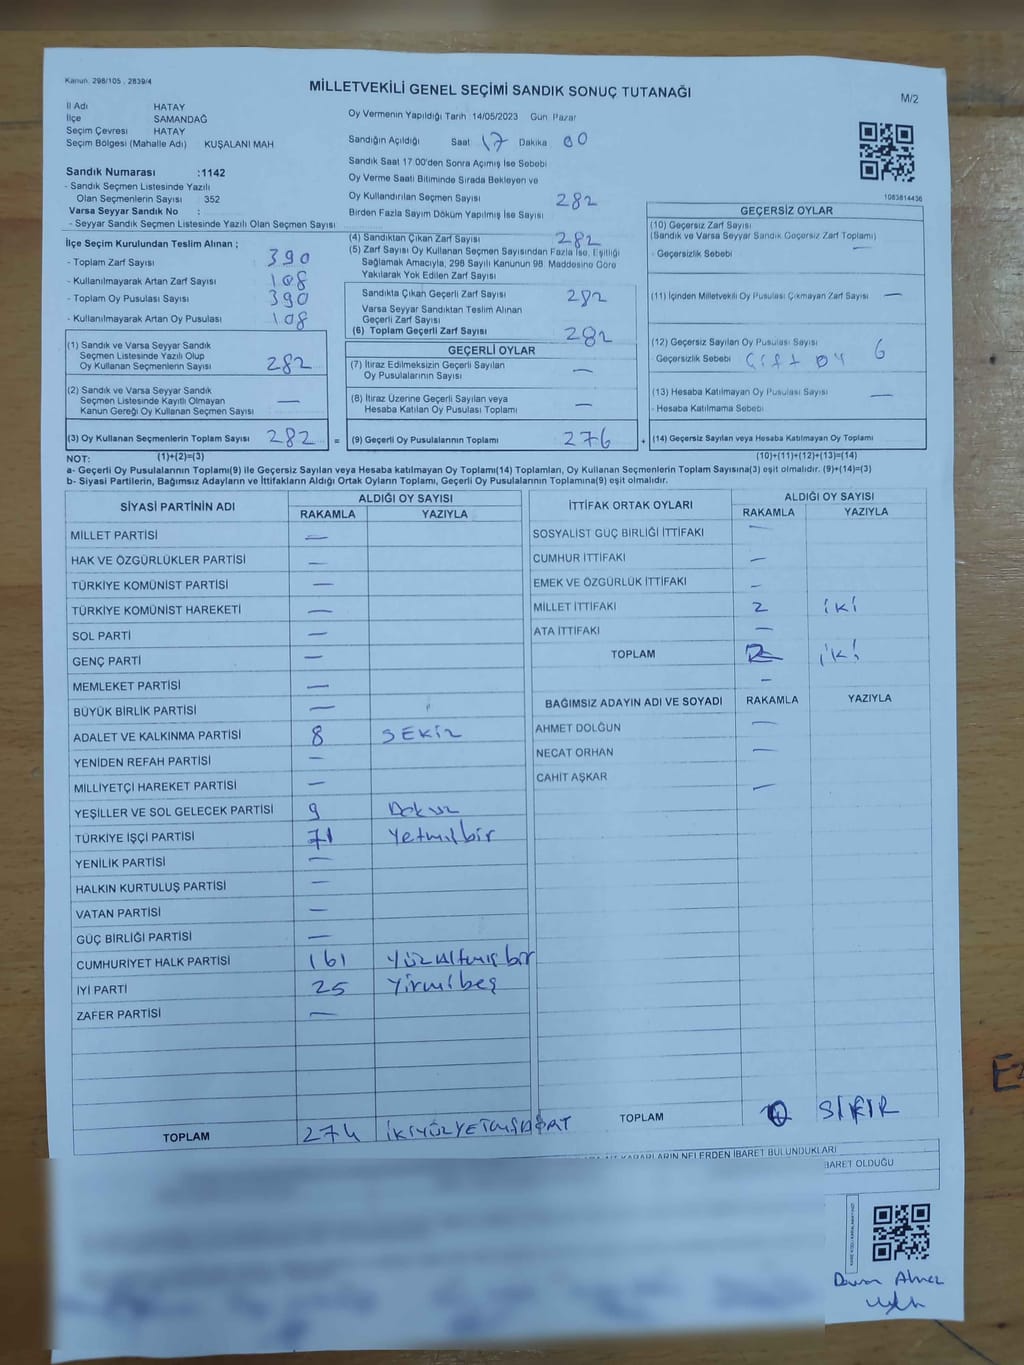 Kanun. 298/105 , 2839/4
MİLLETVEKİLİ GENEL SEÇİMİ SANDIK SONUÇ TUTANAĞI
M/2
İl Adı HATAY
İlçe SAMANDAĞ
Seçim Çevresi HATAY
Seçim Bölgesi (Mahalle Adı) KUŞALANI MAH.
Sandık Numarası :1142
- Sandık Seçmen Listesinde Yazılı
Olan Seçmenlerin Sayısı 352
Varsa Seyyar Sandık No :
- Seyyar Sandık Seçmen Listesinde Yazılı Olan Seçmen Sayısı
Oy Vermenin Yapıldığı Tarih 14/05/2023 Gün Pazar
Sandığın Açıldığı Saat 17 Dakika 00
Sandık Saat 17.00'den Sonra Açımış İse Sebebi
Oy Verme Saati Bitiminde Sırada Bekleyen ve
Oy Kullandırılan Seçmen Sayısı 282
Birden Fazla Sayım Döküm Yapılmış İse Sayısı
1083814436
İlçe Seçim Kurulundan Teslim Alınan ;
- Toplam Zarf Sayısı 390
- Kullanılmayarak Artan Zarf Sayısı 108
- Toplam Oy Pusulası Sayısı 390
- Kullanılmayarak Artan Oy Pusulası 108
(1) Sandık ve Varsa Seyyar Sandık
Seçmen Listesinde Yazılı Olup
Oy Kullanan Seçmenlerin Sayısı 282
(2) Sandık ve Varsa Seyyar Sandık
Seçmen Listesinde Kayıtlı Olmayan
Kanun Gereği Oy Kullanan Seçmen Sayısı —
(3) Oy Kullanan Seçmenlerin Toplam Sayısı 282 =
(4) Sandıktan Çıkan Zarf Sayısı 282
(5) Zarf Sayısı Oy Kullanan Seçmen Sayısından Fazla İse, Eşitliği
Sağlamak Amacıyla, 298 Sayılı Kanunun 98. Maddesine Göre
Yakılarak Yok Edilen Zarf Sayısı
Sandıkta Çıkan Geçerli Zarf Sayısı 282
Varsa Seyyar Sandıktan Teslim Alınan
Geçerli Zarf Sayısı
(6) Toplam Geçerli Zarf Sayısı 282
GEÇERLİ OYLAR
(7) İtiraz Edilmeksizin Geçerli Sayılan
Oy Pusulalarının Sayısı —
(8) İtiraz Üzerine Geçerli Sayılan veya
Hesaba Katılan Oy Pusulası Toplamı —
(9) Geçerli Oy Pusulalarının Toplamı 276 +
GEÇERSİZ OYLAR
(10) Geçersiz Zarf Sayısı
(Sandık ve Varsa Seyyar Sandık Geçersiz Zarf Toplamı) —
- Geçersizlik Sebebi
(11) İçinden Milletvekili Oy Pusulası Çıkmayan Zarf Sayısı —
(12) Geçersiz Sayılan Oy Pusulası Sayısı 6
Geçersizlik Sebebi Çift oy
(13) Hesaba Katılmayan Oy Pusulası Sayısı —
- Hesaba Katılmama Sebebi
(14) Geçersiz Sayılan veya Hesaba Katılmayan Oy Toplamı
NOT: (1)+(2)=(3) (10)+(11)+(12)+(13)=(14)
a- Geçerli Oy Pusulalarının Toplamı(9) ile Geçersiz Sayılan veya Hesaba katılmayan Oy Toplamı(14) Toplamları, Oy Kullanan Seçmenlerin Toplam Sayısına(3) eşit olmalıdır. (9)+(14)=(3)
b- Siyasi Partilerin, Bağımsız Adayların ve İttifakların Aldığı Ortak Oyların Toplamı, Geçerli Oy Pusulalarının Toplamına(9) eşit olmalıdır.
SİYASİ PARTİNİN ADI ALDIĞI OY SAYISI
RAKAMLA YAZIYLA
MİLLET PARTİSİ —
HAK VE ÖZGÜRLÜKLER PARTİSİ —
TÜRKİYE KOMÜNİST PARTİSİ —
TÜRKİYE KOMÜNİST HAREKETİ —
SOL PARTİ —
GENÇ PARTİ —
MEMLEKET PARTİSİ —
BÜYÜK BİRLİK PARTİSİ —
ADALET VE KALKINMA PARTİSİ 8 SEKİZ
YENİDEN REFAH PARTİSİ —
MİLLİYETÇİ HAREKET PARTİSİ —
YEŞİLLER VE SOL GELECEK PARTİSİ 9 Dokuz
TÜRKİYE İŞÇİ PARTİSİ 71 Yetmişbir
YENİLİK PARTİSİ —
HALKIN KURTULUŞ PARTİSİ —
VATAN PARTİSİ —
GÜÇ BİRLİĞİ PARTİSİ —
CUMHURİYET HALK PARTİSİ 161 Yüzaltmışbir
İYİ PARTİ 25 Yirmibeş
ZAFER PARTİSİ —
TOPLAM 274 İKİYÜZYETMİŞDÖRT
İTTİFAK ORTAK OYLARI ALDIĞI OY SAYISI
RAKAMLA YAZIYLA
SOSYALİST GÜÇ BİRLİĞİ İTTİFAKI —
CUMHUR İTTİFAKI —
EMEK VE ÖZGÜRLÜK İTTİFAKI —
MİLLET İTTİFAKI 2 iki
ATA İTTİFAKI —
TOPLAM 2 iki
—
BAĞIMSIZ ADAYIN ADI VE SOYADI RAKAMLA YAZIYLA
AHMET DOLĞUN —
NECAT ORHAN —
CAHİT AŞKAR —
TOPLAM 0 SIFIR
KARARLARIN NELERDEN İBARET BULUNDUKLARI
BARET OLDUĞU